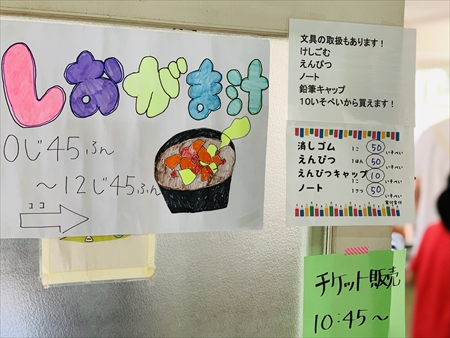 しおがま汁
0じ45ふん
～12じ45ふん
ココ
文具の取扱もあります！
けしごむ
えんぴつ
ノート
鉛筆キャップ
10いそべいから買えます！
消しゴム 1こ 50 いそべい
えんぴつ 1ほん 50 いそべい
えんぴつキャップ 1こ 10 いそべい
ノート 1さつ 50 いそべい
チケット販売
10:45～